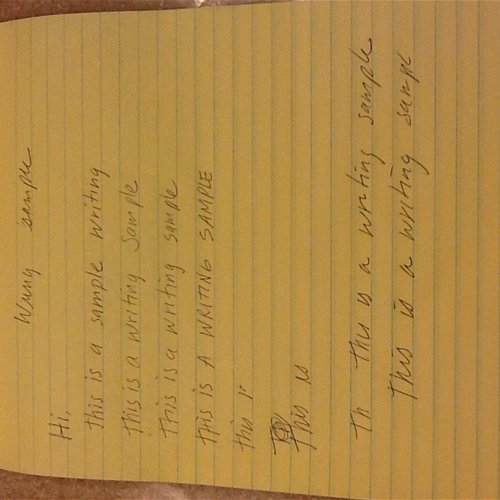 Wrung sample
Hi.
This is a sample writing
This is a writing Sample
This is a writing sample
THIS IS A WRITING SAMPLE
this
This is
Th This is a writing sample
This is a writing sampl